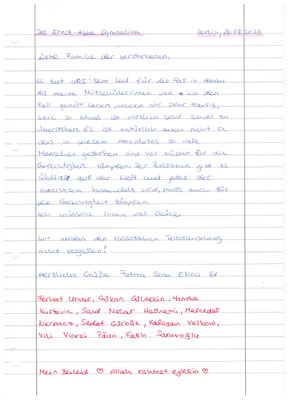 Das Ernst-Abbe Gymnasium Berlin, 26.01.2026
Liebe Familie der verstorbenen,
es tut uns sehr Leid für den Fall in Hanau
Als meine Mitschüler/innen und ich den
Fall gehört haben, waren wir sehr traurig,
weil so etwas ist wirklich sehr schwer zu
überstehen. Es ist natürlich auch nicht ok
dass in diesem so viele
Menschen gestorben sind. Wir müssen für die
Gerechtigkeit kämpfen. Der Rassismus gibt es
überall auf der Welt und jeder der
rassistisch behandelt wird, muss auch für
die Gerechtigkeit kämpfen.
Ich wünsche Ihnen viel Glück.
Wir werden den rassistischen Terroranschlag
nicht vergessen!
Herzliche Grüße Fatma Sena
Ferhat Unvar, Gökhan Gültekin, Hamza
Kurtović, Said Nesar Hashemi, Mercedes
Kierpacz, Sedat Gürbüz, Kaloyan Velkov,
Vili Viorel Păun, Fatih Saraçoğlu
Mein Beileid ♡ Allah rahmet eylesin ♡